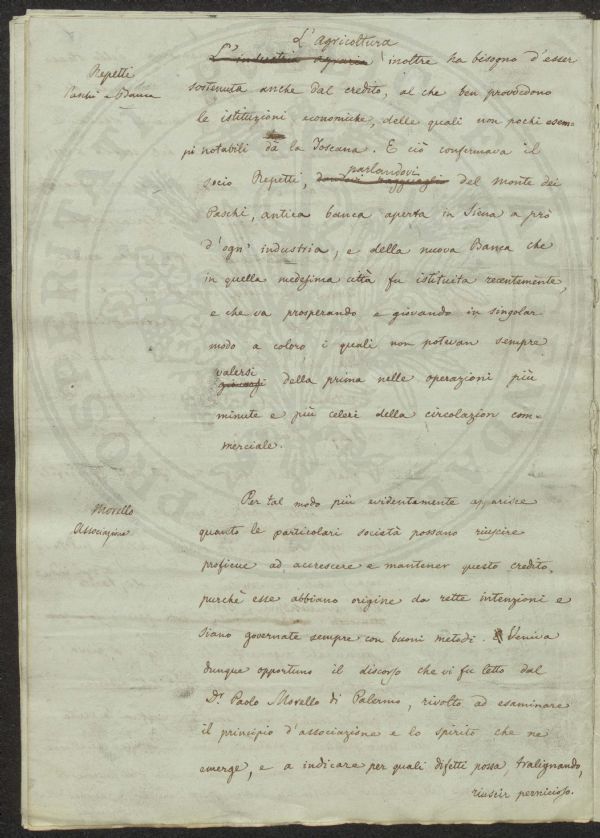 L'Agricoltura
L'industria agraria inoltre ha bisogno d'esser
Repetti
Paschi e Banca
sostenuta anche dal credito, al che ben provvedono
le istituzioni economiche, delle quali non pochi esem-
pi notabili dà la Toscana. E ciò confermava il
parlandovi
socio Repetti, dandovi ragguagli del monte dei
Paschi, antica banca aperta in Siena a prò
d'ogn' industria, e della nuova Banca che
in quella medesima città fu istituita recentemente,
e che va prosperando e giovando in singolar
modo a coloro i quali non potevan sempre
valersi
giovarsi della prima nelle operazioni più
minute e più celeri della circolazion com-
merciale.
Morello
Associazione
Per tal modo più evidentemente apparisce
quanto le particolari società possano riuscire
proficue ad accrescere e mantener questo credito,
purchè esse abbiano origine da rette intenzioni e
siano governate sempre con buoni metodi. Veniva
dunque opportuno il discorso che vi fu letto dal
Dr. Paolo Morello di Palermo, rivolto ad esaminare
il principio d'associazione e lo spirito che ne
emerge, e a indicare per quali difetti possa, tralignando,
riuscir pernicioso.